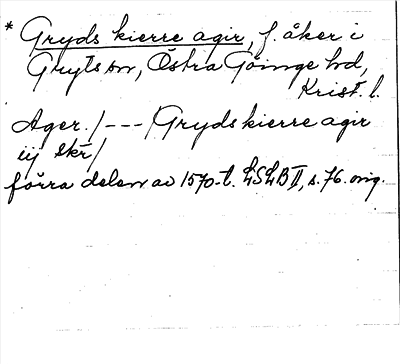 * Gryds kierre agir, f. åker i
Gryts sn, Östra Göinge hd,
Krist. l.
Ager. /---/ Gryds kierre agir
iij skr /
förra delen av 1570-t. LSLB II, s. 76. orig.